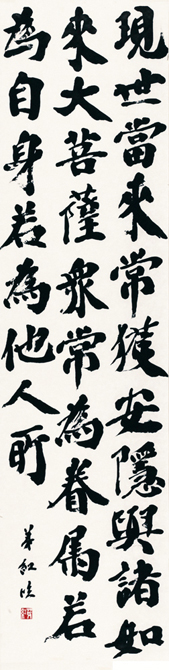 現世當來常獲安隱與諸如
來大菩薩衆常為眷屬若
為自身若為他人所